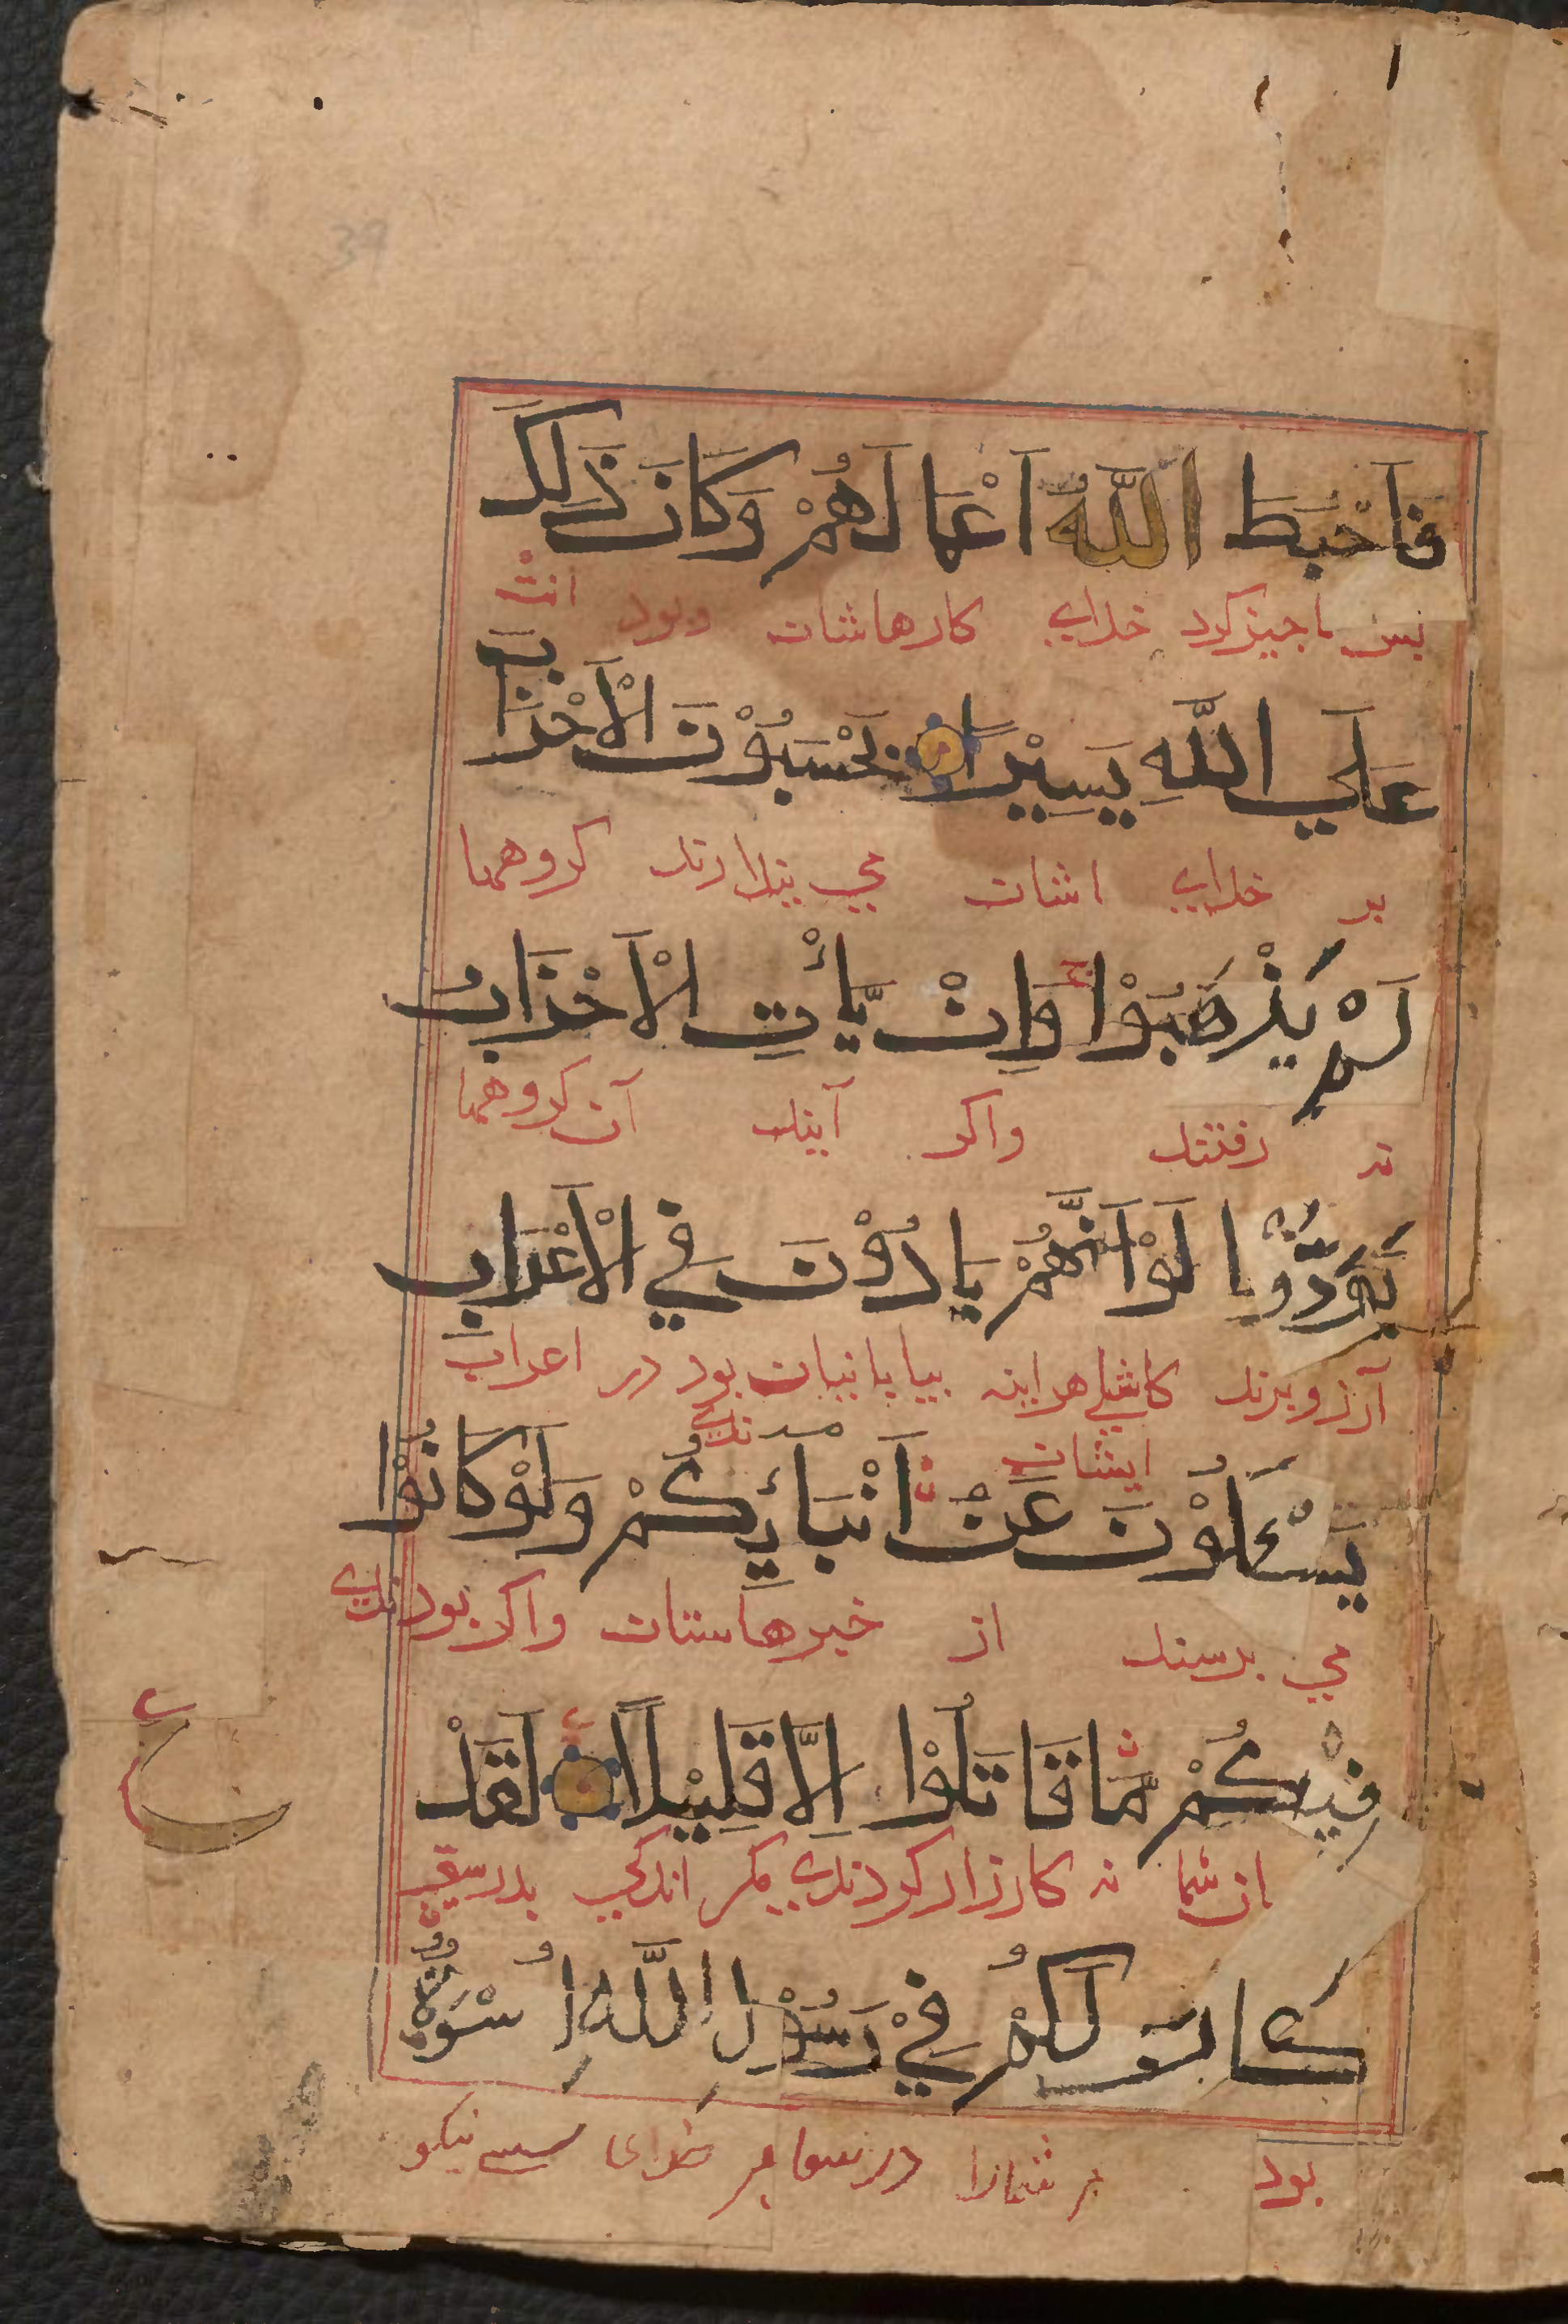 فَاَحْبَطَ اللّٰهُ اَعْمَالَهُمْ وَكَانَ ذَلِكَ
ناجيز كرد خداي كارهاشان وبود
عَلَي اللّٰهِ يَسِيْرًا يَحْسَبُوْنَ الْاَحْزَابَ
بر خداي اشان مي پندارند كروهها
لَمْ يَذْهَبُوْا وَاِنْ يَّأْتِ الْاَحْزَابُ
نه رفتند واكر آيند آن كروهها
يَوَدُّوْا لَوْ اَنَّهُمْ بَادُوْنَ فِي الْاَعْرَابِ
آرزو برند كاشكي هراينه بيابانيان بودندي در اعراب
ايشان
يَسْئَلُوْنَ عَنْ اَنْبَآئِكُمْ وَلَوْ كَانُوْا
مي پرسند از خبرهاشان واكر بودندي
فِيْكُمْ مَّا قَاتَلُوْا اِلَّا قَلِيْلًا لَقَدْ
ع
ان شما نه كارزار كردندي مكر اندكي بدرستي
كَانَ لَكُمْ فِيْ رَسُوْلِ اللّٰهِ اُسْوَةٌ
بود مر شمارا در خداى نيكو
39